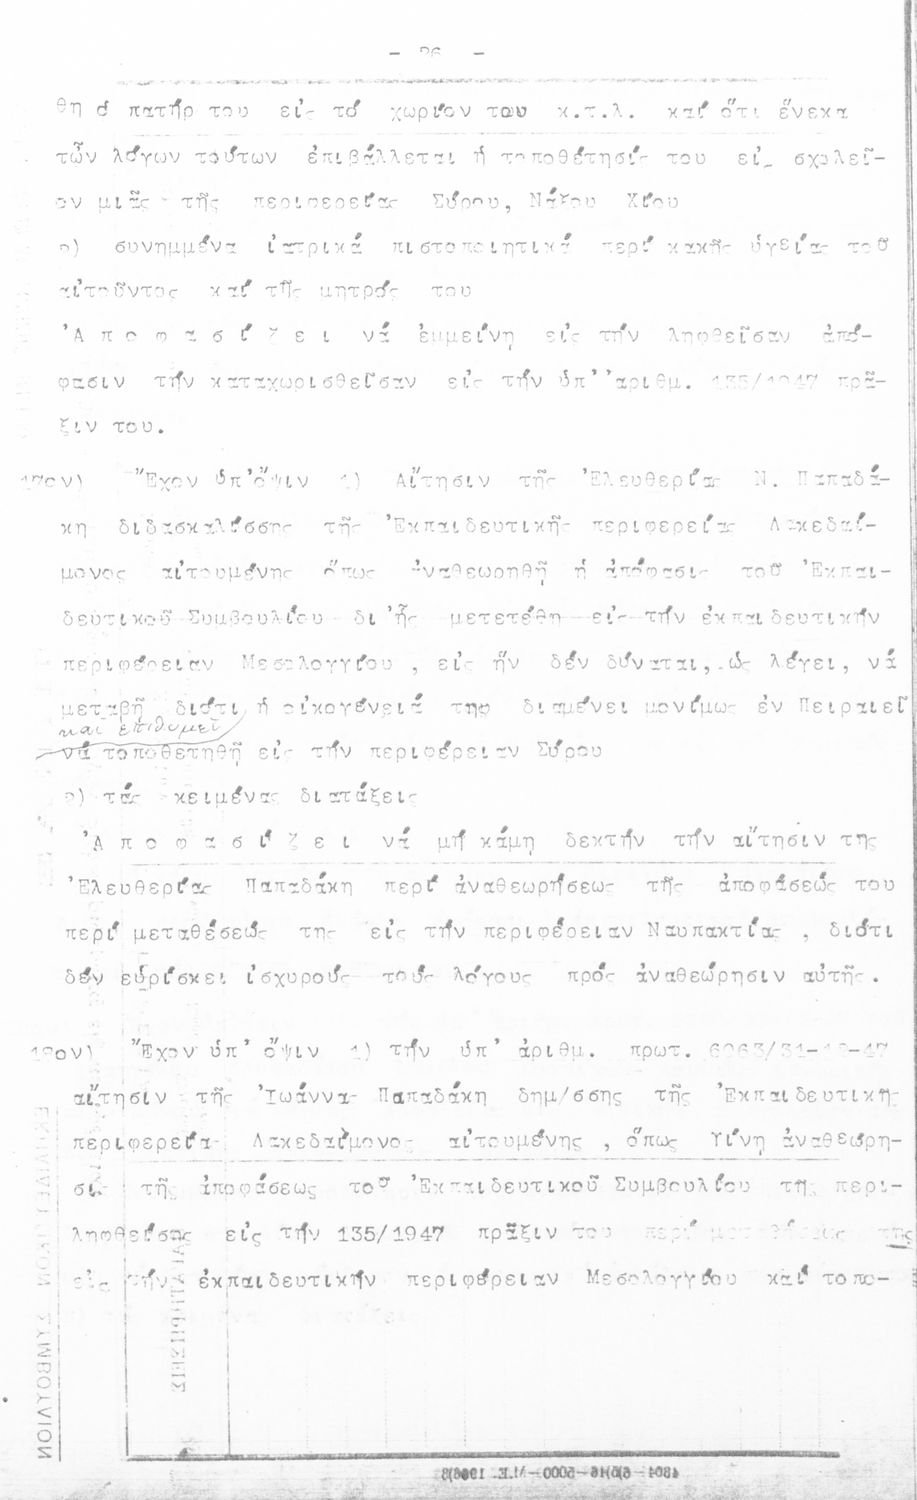 - 26 -
θη ὁ πατήρ του εἰς τό χωρίον του κ.τ.λ. καί ὅτι ἕνεκα
τῶν λόγων τούτων ἐπιβάλλεται ἡ τοποθέτησίς του εἰς σχολεῖ-
ον μιᾶς τῆς περιφερείας Σύρου, Νάξου Χίου
2) συνημμένα ἰατρικά πιστοποιητικά περί κακῆς ὑγείας τοῦ
αἰτοῦντος καί τῆς μητρός του
Ἀ π ο φ α σ ί ζ ε ι νά ἐμμείνη εἰς τήν ληφθεῖσαν ἀπό-
φασιν τήν καταχωρισθεῖσαν εἰς τήν ὑπ' ἀριθμ. 135/1947 πρᾶ-
ξιν του.
17ον) Ἔχον ὑπ' ὄψιν 1) Αἴτησιν τῆς Ἐλευθερίας Ν. Παπαδά-
κη διδασκαλίσσης τῆς Ἐκπαιδευτικῆς περιφερείας Λακεδαί-
μονος αἰτουμένης ὅπως ἀναθεωρηθῆ ἡ ἀπόφασις τοῦ Ἐκπαι-
δευτικοῦ Συμβουλίου δι' ἧς μετετέθη εἰς τήν ἐκπαιδευτικήν
περιφέρειαν Μεσολογγίου , εἰς ἥν δέν δύναται, ὡς λέγει, νά
μεταβῆ διότι ἡ οἰκογένειά της διαμένει μονίμως ἐν Πειραιεῖ
καί ἐπιθυμεῖ
νά τοποθετηθῆ εἰς τήν περιφέρειαν Σύρου
2) τάς κειμένας διατάξεις
Ἀ π ο φ α σ ί ζ ε ι νά μή κάμη δεκτήν τήν αἴτησιν της
Ἐλευθερίας Παπαδάκη περί ἀναθεωρήσεως τῆς ἀποφάσεώς του
περί μεταθέσεώς της εἰς τήν περιφέρειαν Ναυπακτίας , διότι
δέν εὑρίσκει ἰσχυρούς τούς λόγους πρός ἀναθεώρησιν αὐτῆς.
18ον) Ἔχον ὑπ' ὄψιν 1) τήν ὑπ' ἀριθμ. πρωτ. 6063/31-10-47
αἴτησιν τῆς Ἰωάννας Παπαδάκη δημ/σσης τῆς Ἐκπαιδευτικῆς
περιφερείας Λακεδαίμονος αἰτουμένης , ὅπως γίνη ἀναθεώρη-
σις τῆς ἀποφάσεως τοῦ Ἐκπαιδευτικοῦ Συμβουλίου τῆς περι-
ληφθείσης εἰς τήν 135/1947 πρᾶξιν του περί μεταθέσεως της
εἰς τήν ἐκπαιδευτικήν περιφέρειαν Μεσολογγίου καί τοπο-
ΣΥΜΒΟΥΛΙΟΝ